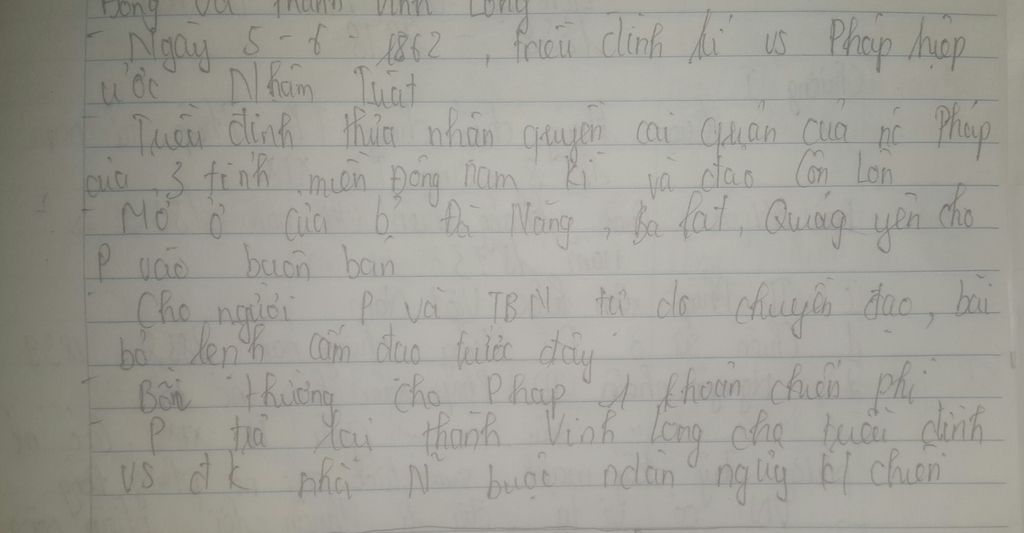 Đông và thành Vĩnh Long
- Ngày 5-6-1862, triều đình kí vs Pháp hiệp
ước Nhâm Tuất
- Triều đình thừa nhận quyền cai quản của nc Pháp
của 3 tỉnh miền Đông Nam Kì và đảo Côn Lôn
- Mở ở cửa b Đà Nẵng, Ba Lạt, Quảng yên cho
P vào buôn bán
- Cho người P và TBN tự do chuyền đạo, bãi
bỏ lệnh cấm đạo trước đây
- Bồi thường cho Pháp 1 khoản chiến phí
- P trả lại thành Vĩnh Long cho triều đình
vs đk nhà N buộc ndân ngừg k/ chiến